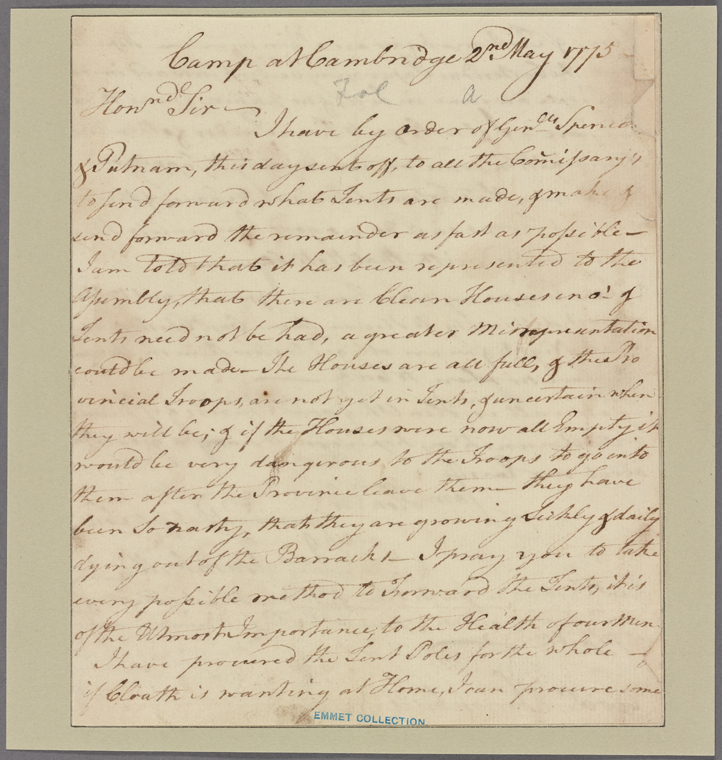 Camp at Cambridge 2nd May 1775
Honrd Sir
I have by order of Genlls Spencer
& Putnam, this day sent off, to all the Comissary's
to send forward what Tents are made, & make &
send forward the remainder as fast as possible—
I am told that it has been represented to the
Assembly, that there are Clean Houses eno' &
Tents need not be had, a greater Misrepresentation
could be made— The Houses are all full, & the Pro
vincial Troops, are not yet in Tents, & uncertain when
they will be; & if the Houses were now all Empty it
would be very dangerous to the Troops to go into
them after the Province leave them— they have
been so nasty, that they are growing Sickly & daily
dying out of the Barracks— I pray you to take
every possible method to Forward the Tents, it is
of the Utmost Importance, to the Health of our Men
I have procured the Tent Poles for the whole—
if Cloath is wanting at Home, I can procure some
EMMET COLLECTION.